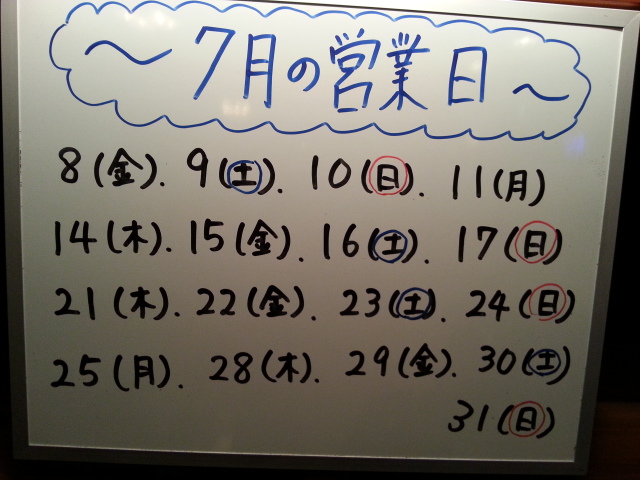 ～7月の営業日～
8(金). 9(土). 10(日). 11(月)
14(木). 15(金). 16(土). 17(日)
21(木). 22(金). 23(土). 24(日)
25(月). 28(木). 29(金). 30(土)
31(日)